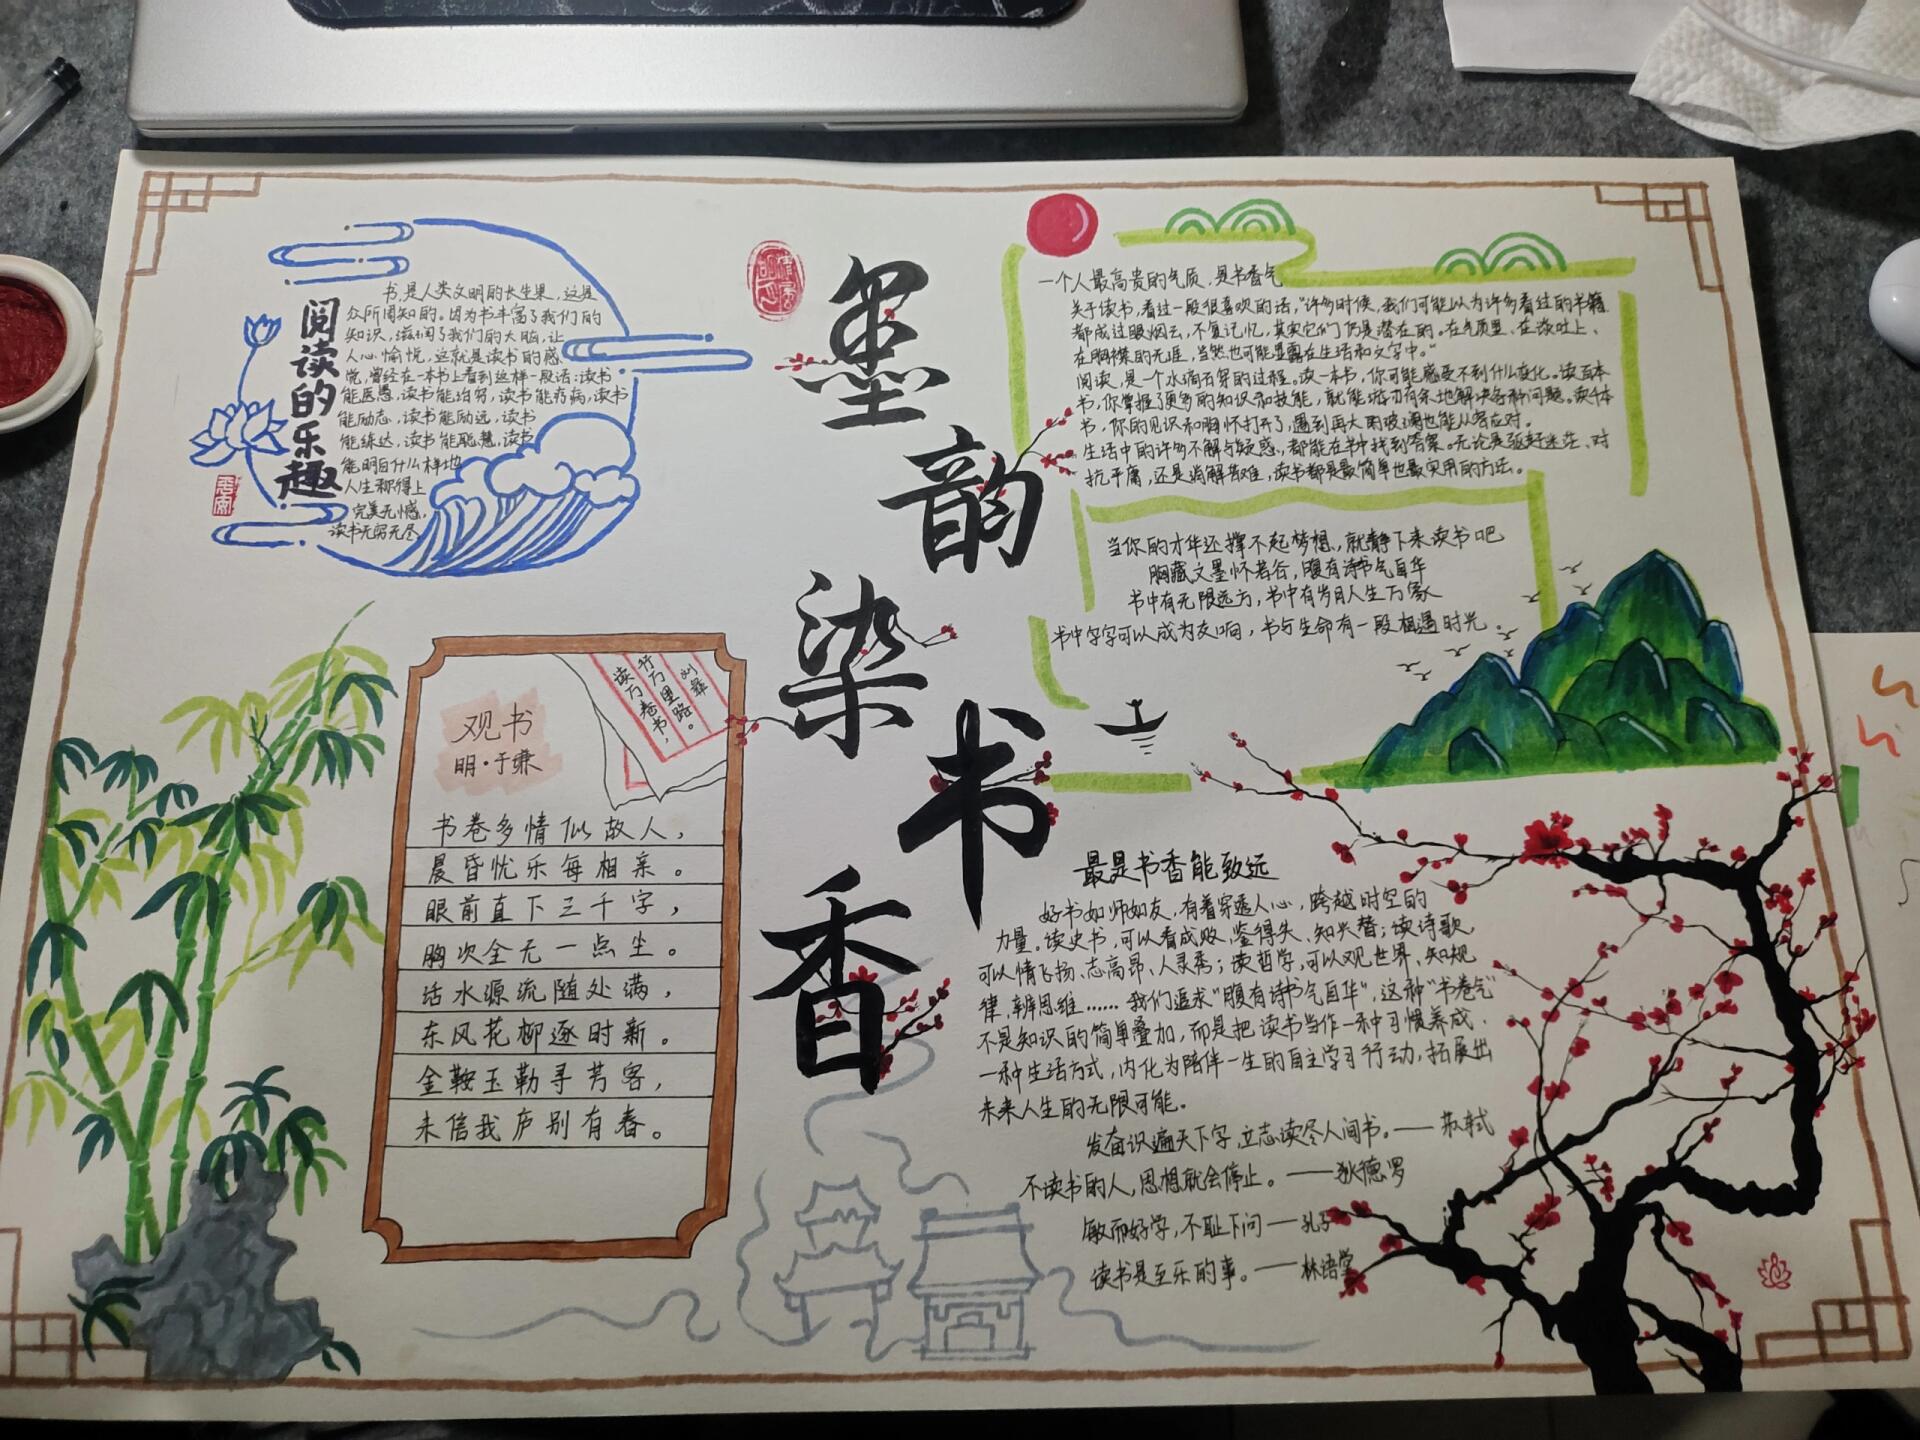 墨韵染书香
阅读的乐趣
书,是人类文明的长生果,这是
众所周知的。因为书丰富了我们的
知识,滋润了我们的大脑,让
人心愉悦,这就是读书的感
觉,曾经在一本书上看到这样一段话:读书
能医愚,读书能治穷,读书能疗病,读书
能励志,读书能励远,读书
能练达,读书能聪慧,读书
能明白什么样地
人生称得上
完美无憾,
读书无穷无尽
读万卷书,
行万里路。
刘彝
观书
明·于谦
书卷多情似故人,
晨昏忧乐每相亲。
眼前直下三千字,
胸次全无一点尘。
活水源流随处满,
东风花柳逐时新。
金鞍玉勒寻芳客,
未信我庐别有春。
一个人最高贵的气质,是书香气
关于读书,看过一段很喜欢的话,“许多时候,我们可能以为许多看过的书籍
都成过眼烟云,不复记忆,其实它们仍是潜在的。在气质里、在谈吐上、
在胸襟的无涯,当然也可能显露在生活和文字中。”
阅读,是一个水滴石穿的过程。读一本书,你可能感受不到什么变化。读百本
书,你掌握了更多的知识和技能,就能游刃有余地解决各种问题。读千本
书,你的见识和胸怀打开了,遇到再大的波澜也能从容应对。
生活中的许多不解与疑惑,都能在书中找到答案。无论是驱赶迷茫、对
抗平庸,还是消解苦难,读书都是最简单也最实用的方法。
当你的才华还撑不起梦想,就静下来读书吧
胸藏文墨怀若谷,腹有诗书气自华
书中有无限远方,书中有岁月人生万象
书中字字可以成为交响,书与生命有一段相遇时光。
最是书香能致远
好书如师如友,有着穿透人心,跨越时空的
力量。读史书,可以看成败、鉴得失、知兴替;读诗歌,
可以情飞扬、志高昂、人灵秀;读哲学,可以观世界、知规
律、辨思维……我们追求“腹有诗书气自华”,这种“书卷气”
不是知识的简单叠加,而是把读书当作一种习惯养成、
一种生活方式,内化为陪伴一生的自主学习行动,拓展出
未来人生的无限可能。
发奋识遍天下字,立志读尽人间书。——苏轼
不读书的人,思想就会停止。——狄德罗
敏而好学,不耻下问——孔子
读书是至乐的事。——林语堂